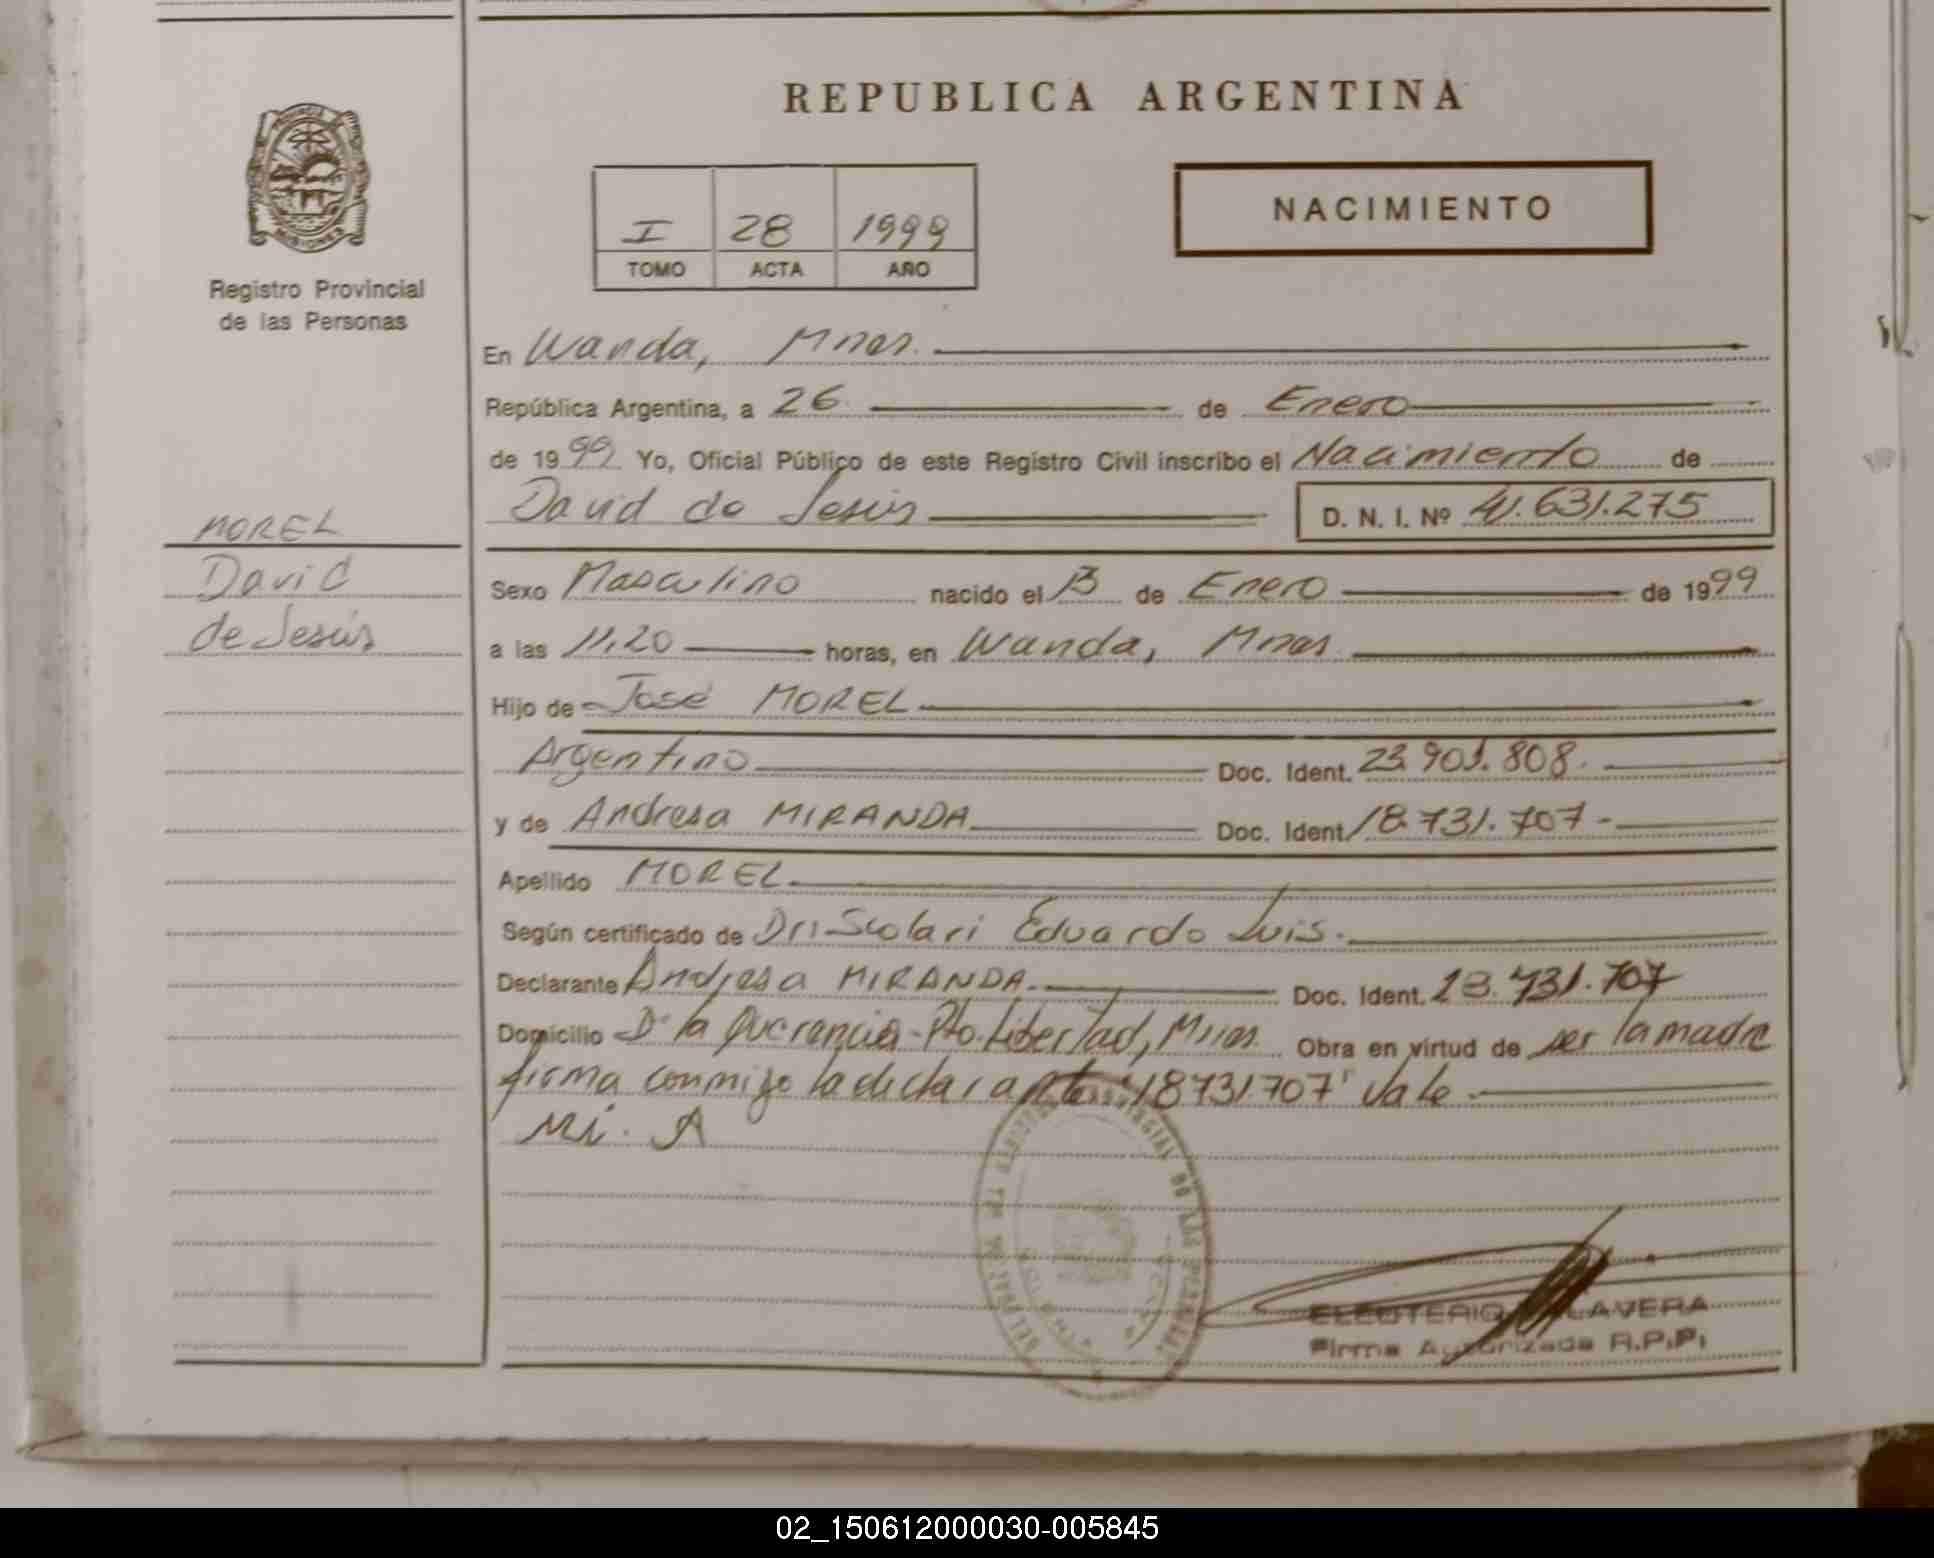 REPUBLICA ARGENTINA
MISIONES
Registro Provincial
de las Personas
I 28 1999
TOMO ACTA AÑO
NACIMIENTO
En Wanda, Mnes.
República Argentina, a 26 de Enero
de 1999 Yo, Oficial Público de este Registro Civil inscribo el Nacimiento de
David de Jesús D. N. I. Nº 41.631.275
MOREL
David
de Jesús
Sexo Masculino nacido el 13 de Enero de 1999
a las 11,20 horas, en Wanda, Mnes
Hijo de José MOREL
Argentino Doc. Ident. 23.901.808.
y de Andresa MIRANDA Doc. Ident 18.731.707-
Apellido MOREL
Según certificado de Dr: Scolari Eduardo Luis.
Declarante Andresa MIRANDA. Doc. Ident. 18.731.707
Domicilio la Querencia-Pto. Libertad, Mnes. Obra en virtud de ser la madre
firma conmigo la declarante: "18731.707" Vale
Mi. A
ELEUTERIO TALAVERA
Firma Autorizada R.P.P.
02_150612000030-005845